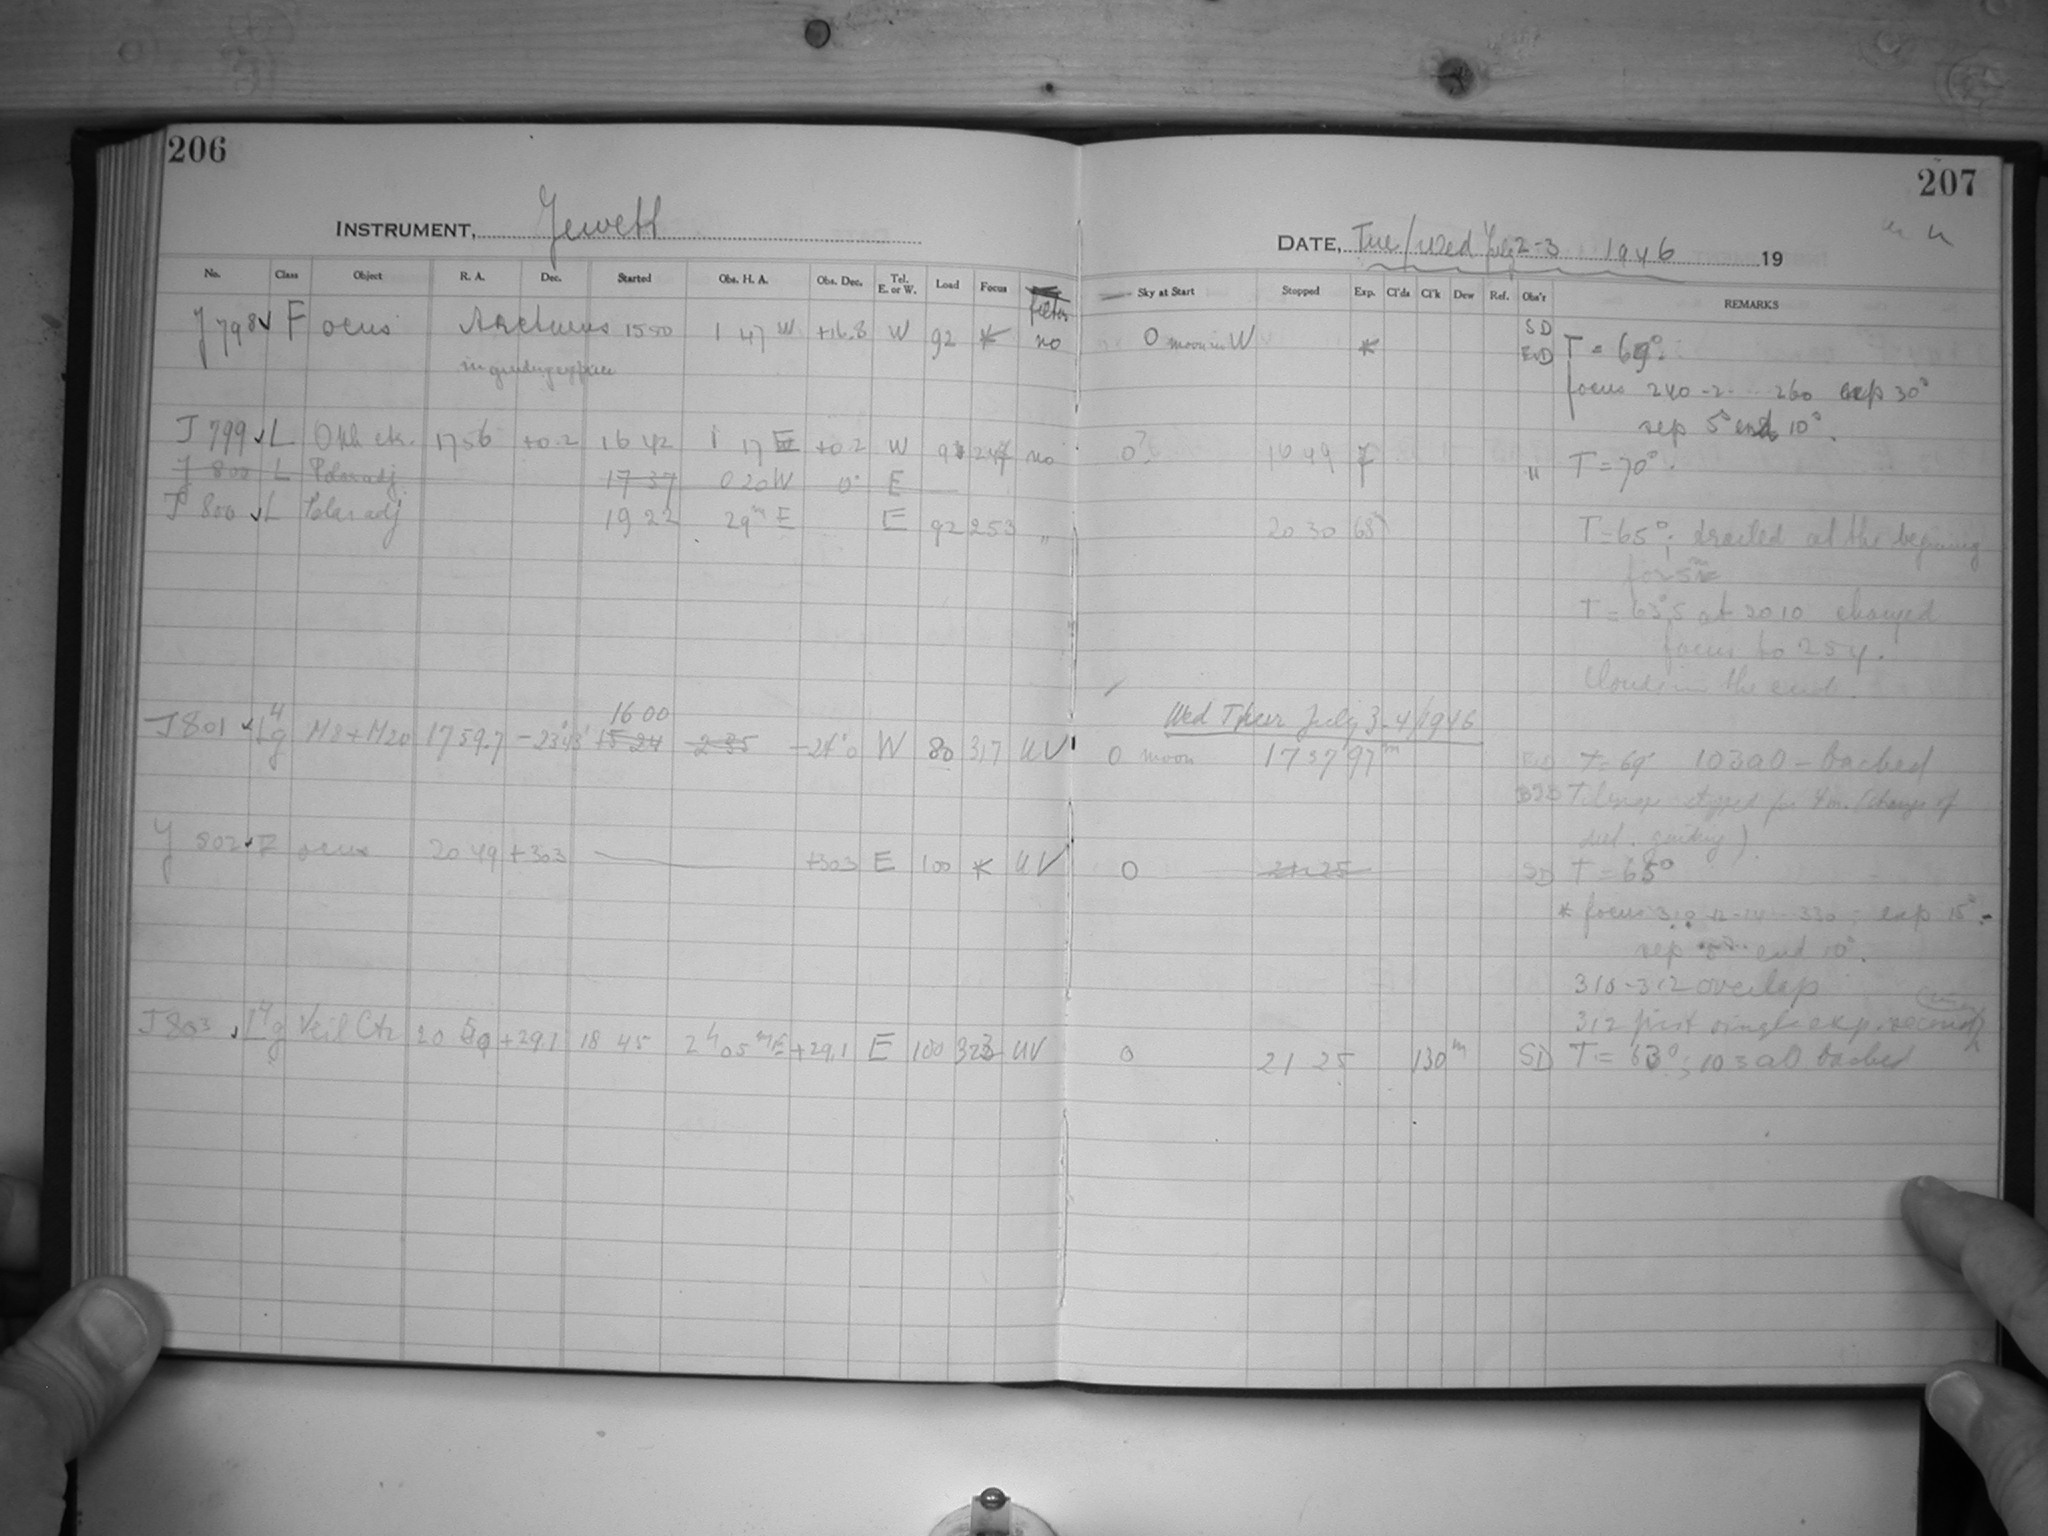 206
207
INSTRUMENT, Jewett
DATE, Tue/Wed July 2-3 1946 19
No. Class Object R. A. Dec. Started Obs. H. A. Obs. Dec. Tel. E. or W. Load Focus filter
Sky at Start Stopped Exp. Cl'ds Cl'k Dew Ref. Obs'r REMARKS
J 798 ✓ F ocus Arcturus 1550 1 47 W +16.8 W 92 * no 0 moon in W * SD T = 69°.
in
focus 240 -2- ... 260 exp 30s
sep 5s end 10s.
J 799 ✓ L Oph ctr. 1756 +0.2 16 42 1 17 E +0.2 W 91 247 no 0? 16 49 7 " T = 70°.
J 800 L Polar adj. 17 37 0 20 W 0° E
J 800 ✓ L Polar adj 19 22 29m E E 92 253 " 20 30 68m T = 65°; trailed at the beginning
for 5m
T = 63°.5 at 2010 changed
focus to 254.
Clouds in the end.
Wed Thur July 3-4/1946
16 00
J 801 ✓ L4g M8 + M20 17 59.7 -23° 15 24 2 35 W 80 317 UV 0 moon 17 37 97m T = 69° 103aO - backed
stopped for (change of
guiding).
J 802 ✓ F ocus 20 49 +30.3 +30.3 E 100 * UV 0 21 25 SD T = 65°
* focus 310 -12-14 ... 330; exp 15s.-
sep end 10s.
310-312 overlap
312 first single exp. second
J 803 ✓ L4g Veil Ctr 20 50 +29.1 18 45 2h 05m E +29.1 E 100 323 UV 0 21 25 130m SD T = 63°; 103aO backed